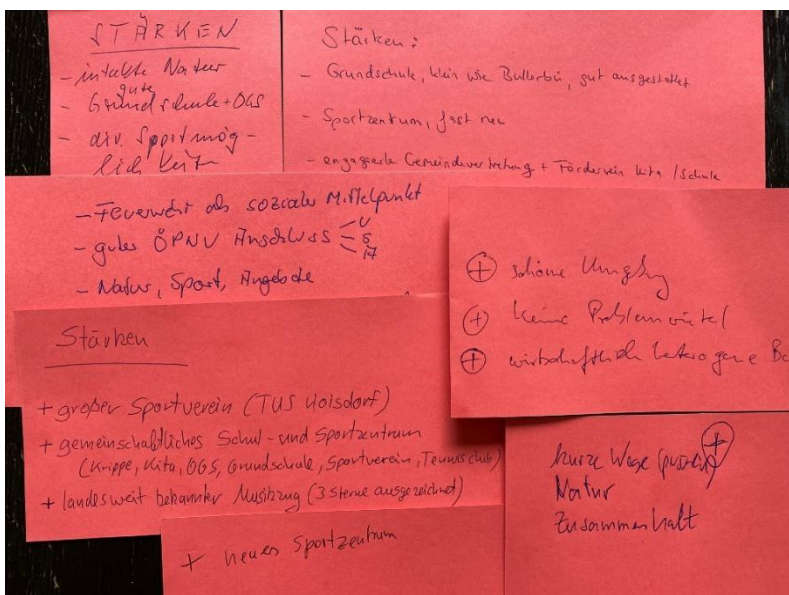 STÄRKEN
- intakte Natur
- gute Grundschule + OGS
- div. Sportmög-
lichkeit
Stärken:
- Grundschule, klein wie Bullerbü, gut ausgestattet
- Sportzentrum, fast neu
- engagierte Gemeindevertretung + Förderverein Kita/Schule
- Feuerwehr als sozialer Mittelpunkt
- guter ÖPNV Anschluss U
S
- Natur, Sport, Angebote
+ schöne Umgebung
+ keine Problemviertel
+ wirtschaftlich heterogene
Stärken
+ großer Sportverein (TUS Hoisdorf)
+ gemeinschaftliches Schul- und Sportzentrum
(Krippe, Kita, OGS, Grundschule, Sportverein, Tennisclub)
+ landesweit bekannter Musikzug (3 Sterne ausgezeichnet)
+ neues Sportzentrum
kurze Wege +
Natur
Zusammenhalt